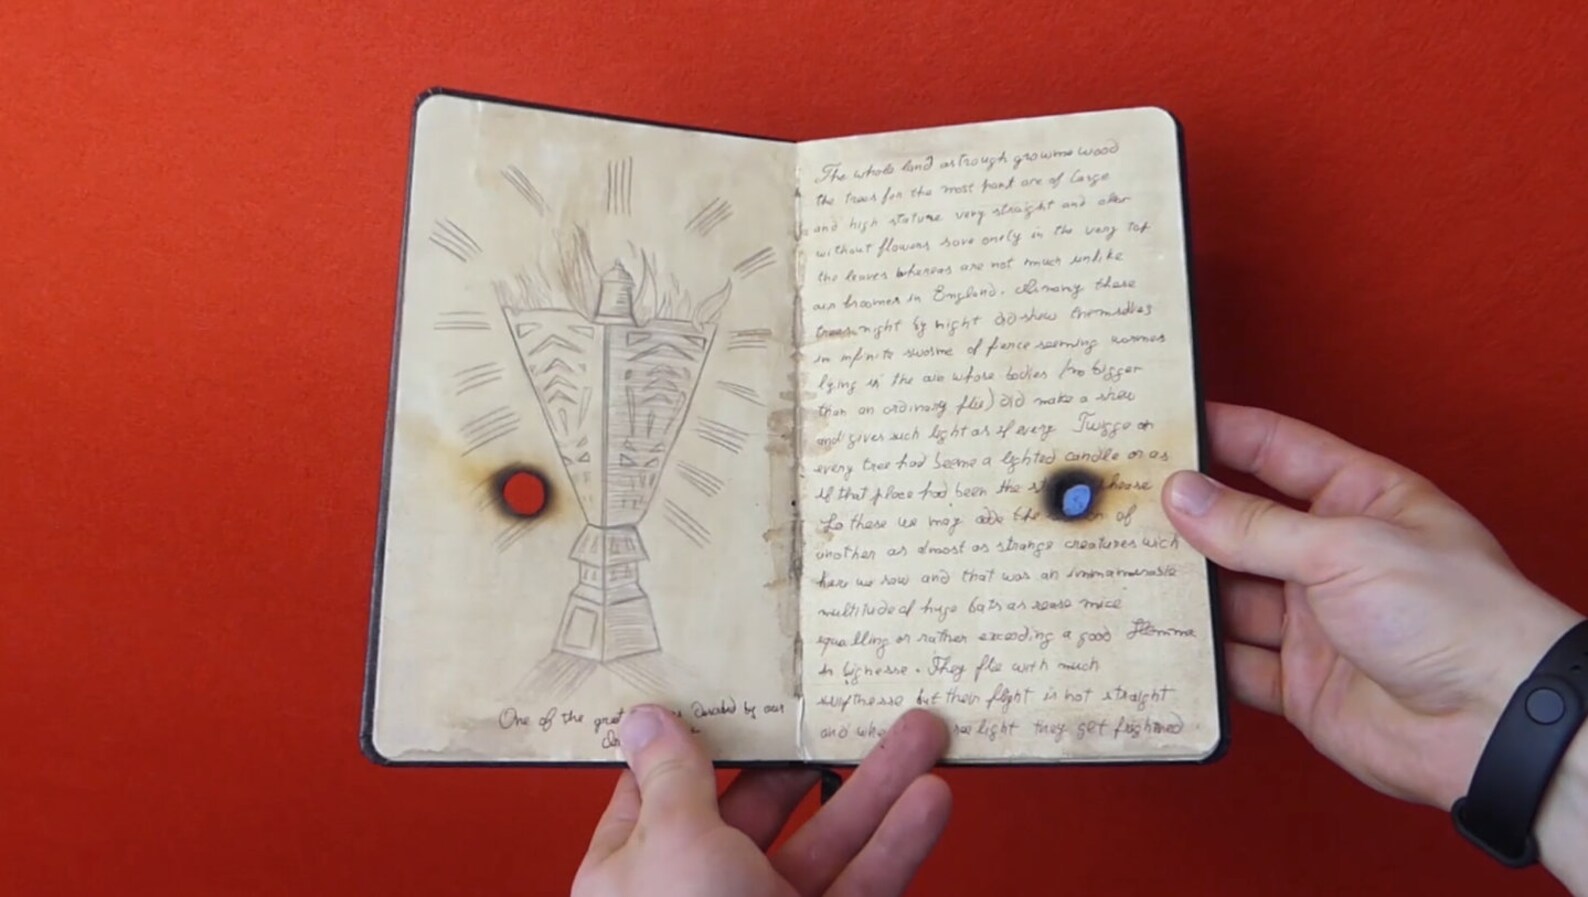 One of the great by our
The whole land astrough growme wood
the trees for the most part are of large
and high stature very straight and
without flowers save onely in the very top
the leaves whereas are not much unlike
our broomes in England. Among these
trees night by night did show themselves
in infinite swarme of fierce seeming wormes
lying in the air whose bodies (no bigger
than an ordinary flie) did make a show
and gives such light as if every Twigge on
every tree had beeme a lighted candle or as
if that place had been the
To these we may adde the of
another as almost as strange creatures wich
here we saw and that was an
multitude of huge bats as reare mice
equalling or rather exceeding a good Hemme
in bignesse. They flie with much
swiftnesse but their flight is not straight
and light they get frightned